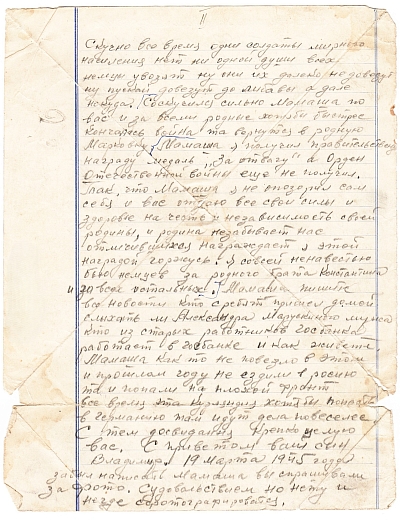 11
Скучно все время одни солдаты мирного
населения нет ни одной души всех
немцы увозят ну они их далеко не довезут
ну пускай довезут до Либавы а дале
некуда. Соскучился сильно Мамаша по
вас и за всеми родные хотябы быстрее
кончилась война та вернутся в родную
Марковку. Мамаша я получил правительств
награду - медаль "За отвагу" а Орден
Отечественной войны еще не получил.
Так, что Мамаша я не опозорил сам
себя и вас отдаю все свои силы и
здоровье на честь и независимость своей
родины, и родина незабывает нас
отличившихся награждает я этой
наградой горжусь. Я совсей ненавестью
бью немцев за родного брата Константина
и за всех остальных. Мамаша пишите
все новости кто с ребят пришел домой
слыхать ли Александра Марункиного мужа
кто из старых работников госбанка
работает в госбанке и как живете
Мамаша как то не повезло в этом
и прошлом году не ездили в росию
та и попали на плохой фронт
все время эта Курляндия хотябы попасть
в германию там идут дела повеселее
С тем досвидания Крепко целую
вас. С приветом ваш сын
Владимир. 19 марта 1945 года
забыл написать Мамаша вы спрашували
за фото. Судовольствием но нету и
негде сфотографироватся.